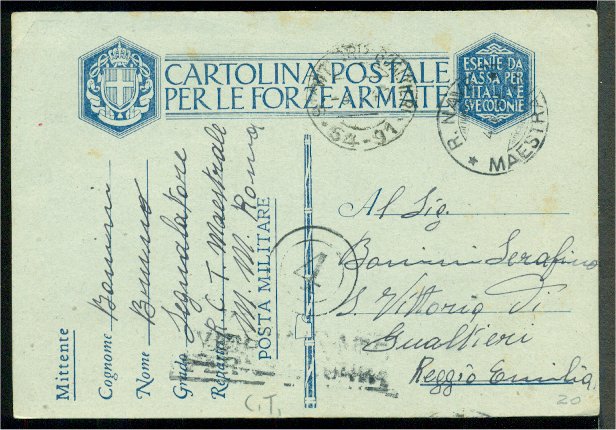 CARTOLINA POSTALE
PER LE FORZE ARMATE
ESENTE DA
TASSA PER
L'ITALIA E
SVE COLONIE
64-91
R. NAV
MAESTRA
Mittente
Cognome Bonini
Nome Bruno
Grado Segnalatore
Reparto R. C. T. Maestrale
M. M. Roma
POSTA MILITARE
4
Al Sig.
Bonini Serafino
S. Vittoria di
Gualtieri
Reggio Emilia
C.T.
20